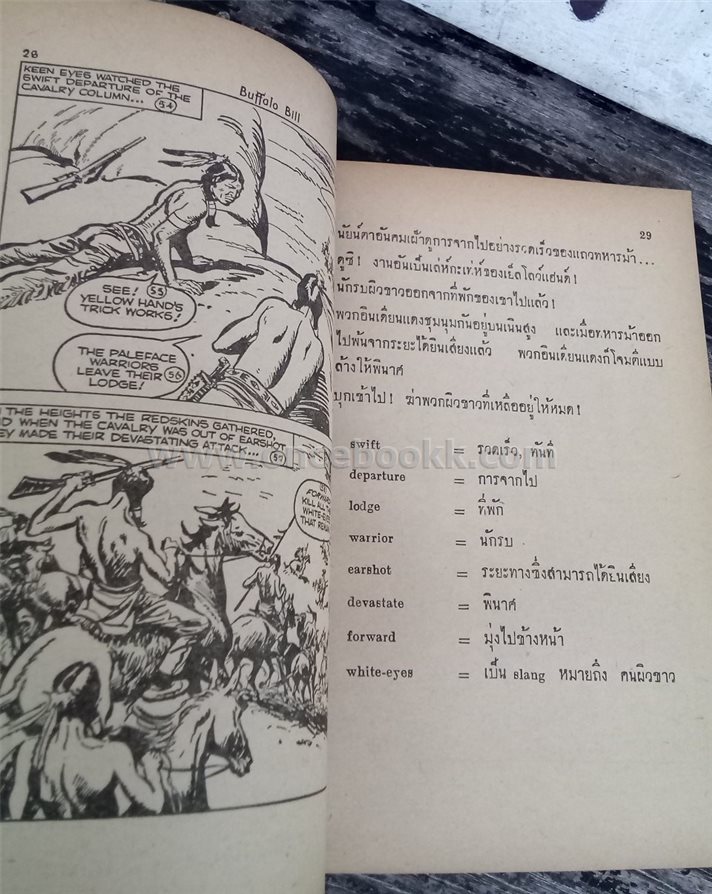 28
KEEN EYES WATCHED THE
SWIFT DEPARTURE OF THE
CAVALRY COLUMN... 54
Buffalo Bill
SEE! 55
YELLOW HAND'S
TRICK WORKS!
THE PALEFACE
WARRIORS 56
LEAVE THEIR
LODGE!
THE HEIGHTS THE REDSKINS GATHERED,
WHEN THE CAVALRY WAS OUT OF EARSHOT
MADE THEIR DEVASTATING ATTACK... 57
FORWARD
KILL ALL
WHITE-EYES
THAT
29
นัยน์ตาอันคมเฝ้าดูการจากไปอย่างรวดเร็วของแถวทหารม้า...
ดูซิ! งานอันเป็นเล่ห์กะเท่ห์ของเย็ลโลว์แฮนด์!
นักรบผิวขาวออกจากที่พักของเขาไปแล้ว!
พวกอินเดียนแดงชุมนุมกันอยู่บนเนินสูง และเมื่อทหารม้าออก
ไปพ้นจากระยะได้ยินเสียงแล้ว พวกอินเดียนแดงก็โจมตีแบบ
ล้างให้พินาศ
บุกเข้าไป! ฆ่าพวกผิวขาวที่เหลืออยู่ให้หมด!
swift = รวดเร็ว, ทันที
departure = การจากไป
lodge = ที่พัก
warrior = นักรบ
earshot = ระยะทางซึ่งสามารถได้ยินเสียง
devastate = พินาศ
forward = มุ่งไปข้างหน้า
white-eyes = เป็น slang หมายถึง คนผิวขาว
www.oncebookk.com